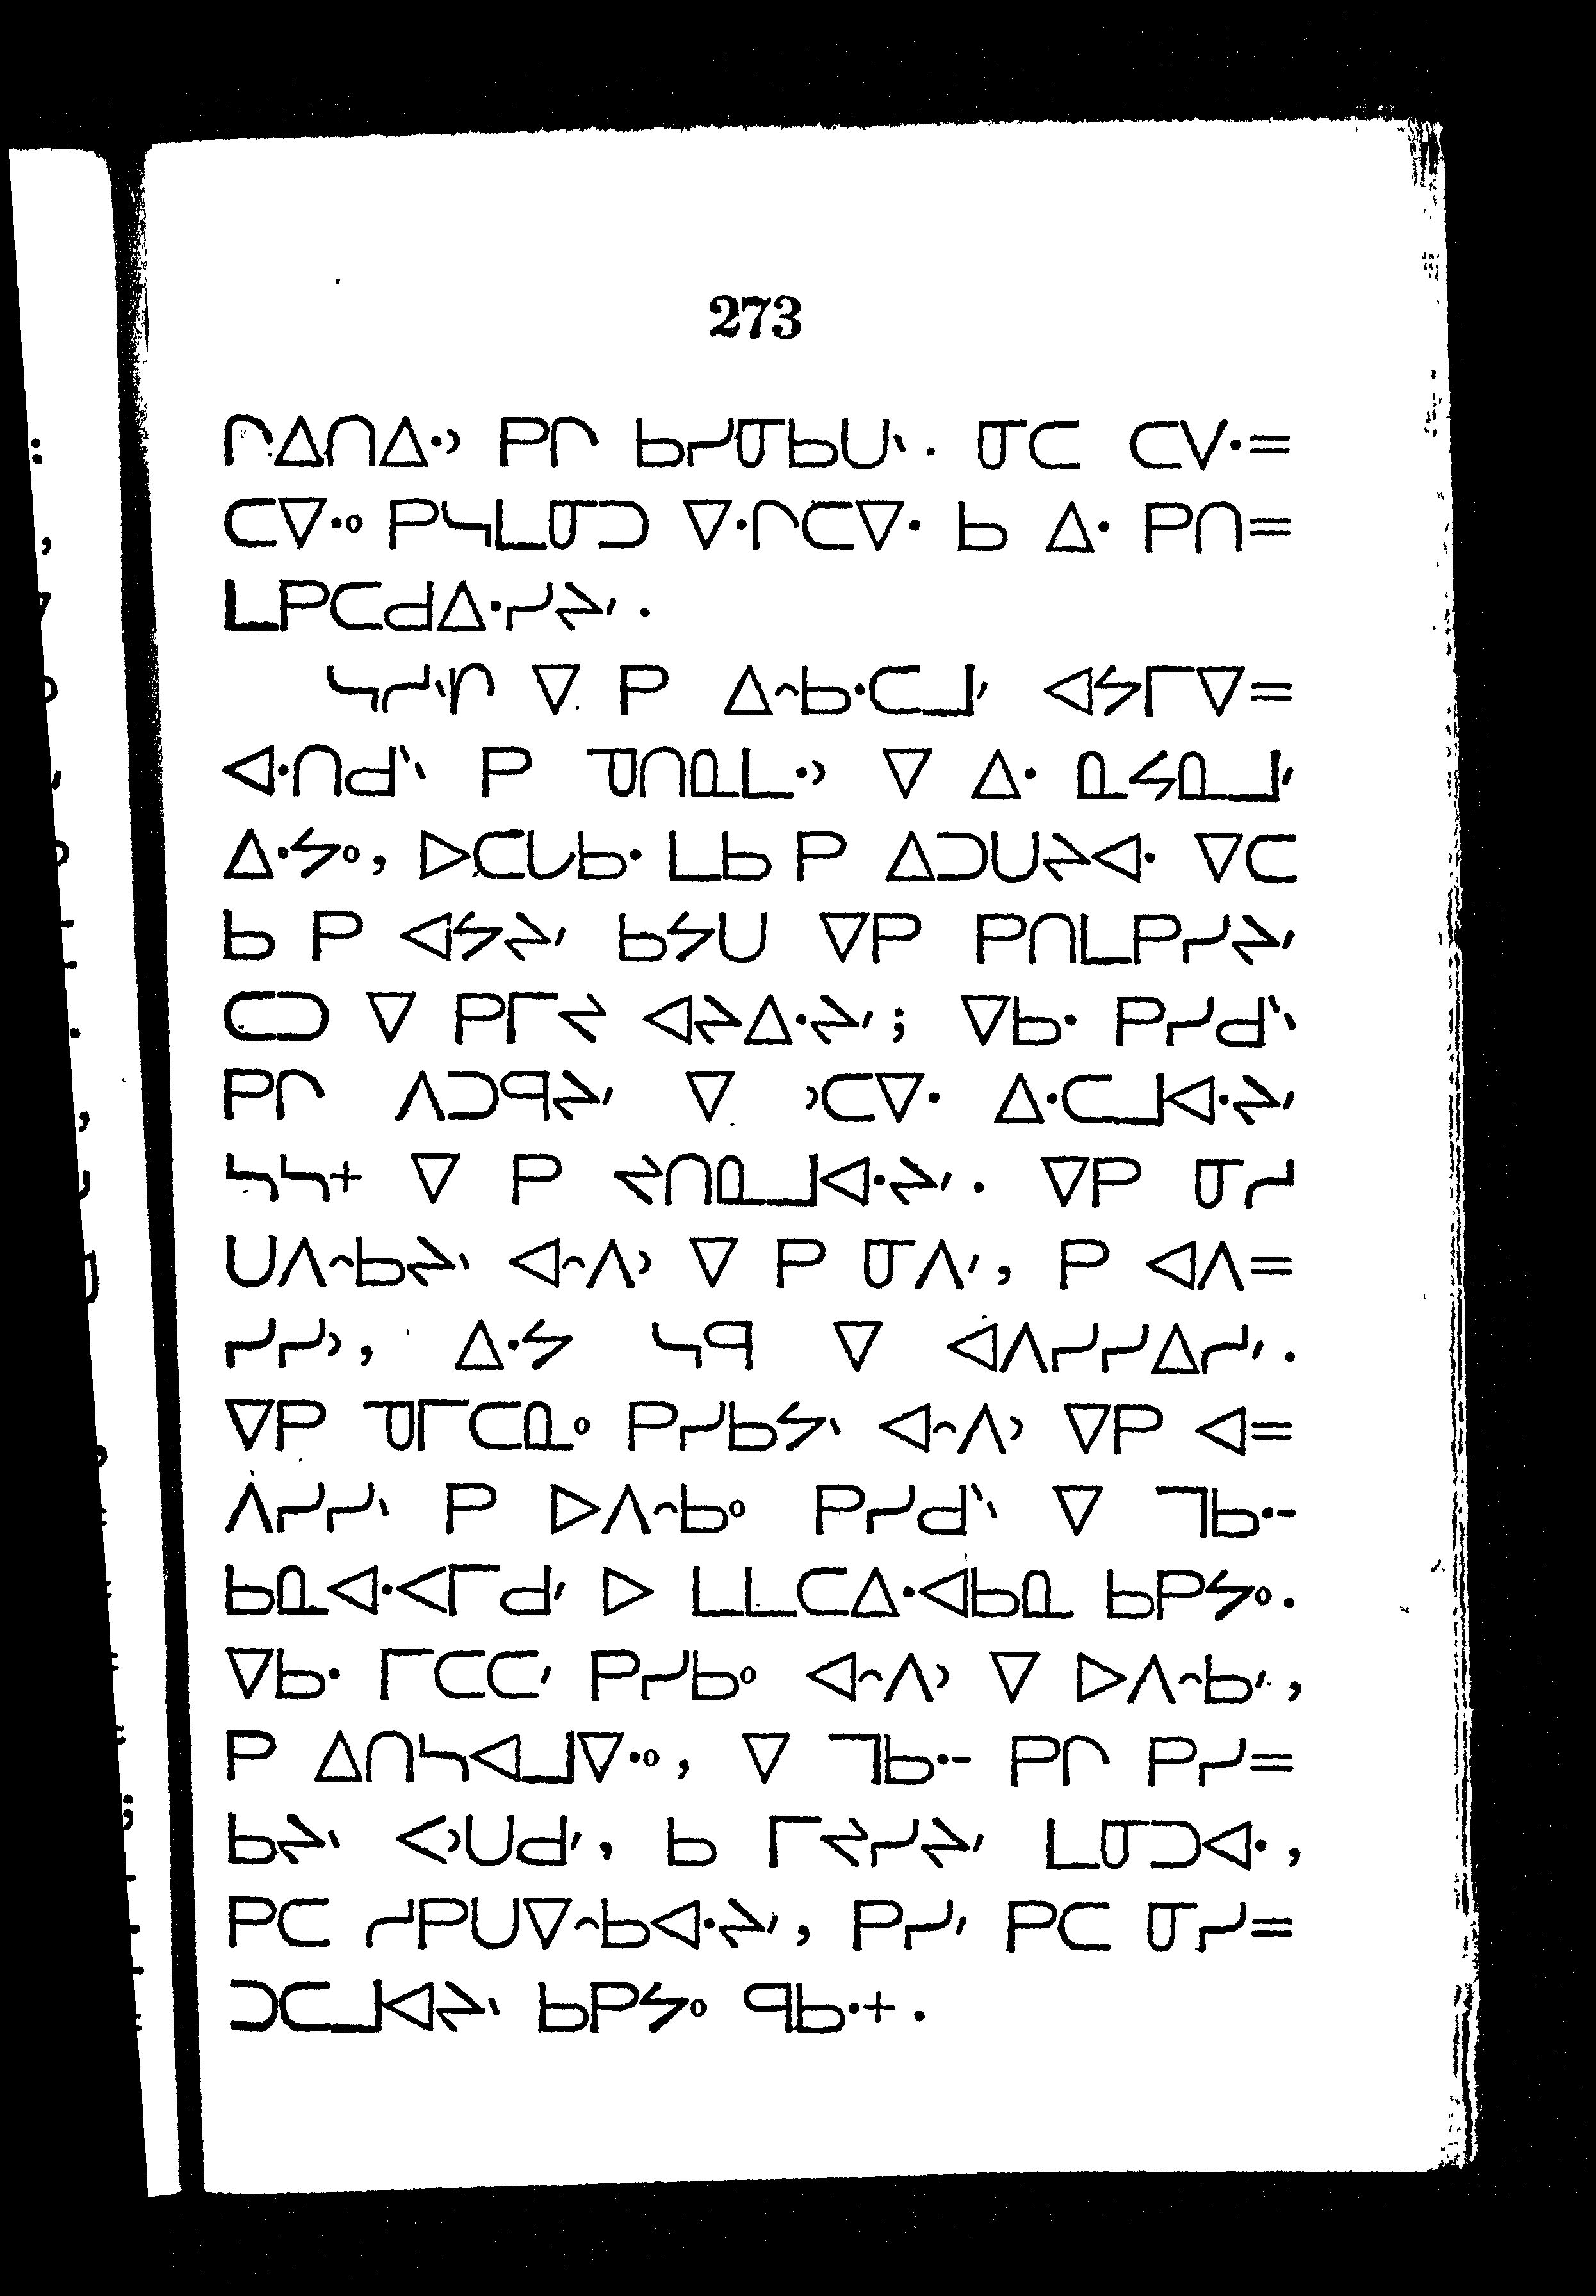 273
ᒋᐃᑎᐃᐧᐣ ᑭᒋ ᑲᓯᓂᑲᑌᐠ . ᓂᑕ ᑕᐯᐧ=
ᑕᐁᐧᐤ ᑭᓴᒪᓂᑐ ᐁᐧᒋᑕᐁᐧ ᑲ ᐃᐧ ᑭᑎ=
ᒪᑭᑕᑯᐃᐧᓯᔨᐟ .
ᓴᓱᐠᒋ ᐁ ᑭ ᐃᐢᑲᐧᑕᒧᐟ ᐊᔭᒥᐁ=
ᐊᐧᑎᑯᐠ ᑭ ᓀᑎᓇᒪᐧᐣ ᐁ ᐃᐧ ᓇᔭᓇᒧᐟ
ᐃᐧᔭᐤ, ᐅᑕᒐᑲᐧ ᒪᑲ ᑭ ᐃᑐᑌᔨᐊᐧ ᐁᑕ
ᑲ ᑭ ᐊᔭᔨᐟ ᑲᔭᑌ ᐁᑭ ᑭᑎᒪᑭᓯᔨᐟ
ᑕᑐ ᐁ ᑭᒥᔪ ᐊᔨᐃᐧᔨᐟ ; ᐁᑲᐧ ᑭᓯᑯᐠ
ᑭᒋ ᐱᑐᑫᔨᐟ ᐁ ᐣᑕᐁᐧ ᐃᐧᑕᒧᐊᐧᔨᐟ
ᓴᓴᕀ ᐁ ᑭ ᔪᑎᓇᒧᐊᐧᔨᐟ . ᐁᑭ ᓂᓱ
ᑌᐱᐢᑲᔨᐠ ᐊᐢᐱᐣ ᐁ ᑭ ᓂᐱᐟ, ᑭ ᐊᐱ=
ᓯᓯᐣ, ᐃᐧᔭ ᓴᑫ ᐁ ᐊᐱᓯᓯᐃᓱᐟ .
ᐁᑭ ᓀᒥᑕᓇᐤ ᑭᓯᑲᔭᐠ ᐊᐢᐱᐣ ᐁᑭ ᐊ=
ᐱᓯᓯᐠ ᑭ ᐅᐱᐢᑲᐤ ᑭᓯᑯᐠ ᐁ ᒣᑲᐧᐨ
ᑲᓇᐊᐧᐸᒥᑯᐟ ᐅ ᒪᒪᑕᐃᐧᐊᑲᓇ ᑲᑭᔭᐤ .
ᐁᑲᐧ ᒥᑕᑕᐟ ᑭᓯᑲᐤ ᐊᐢᐱᐣ ᐁ ᐅᐱᐢᑲᐟ ,
ᑭ ᐃᑎᓴᐊᒧᐁᐧᐤ , ᐁ ᒣᑲᐧᐨ ᑭᒋ ᑭᓯ=
ᑲᔨᐠ ᐸᐣᑌᑯᐟ , ᑲ ᒥᔪᓯᔨᐟ ᒪᓂᑐᐊᐧ ,
ᑭᑕ ᓱᑭᑌᐁᐢᑲᐊᐧᔨᐟ , ᑭᓯᐟ ᑭᑕ ᓂᓯ=
ᑐᑕᒧᐊᔨᐠ ᑲᑭᔭᐤ ᑫᑲᐧᕀ .